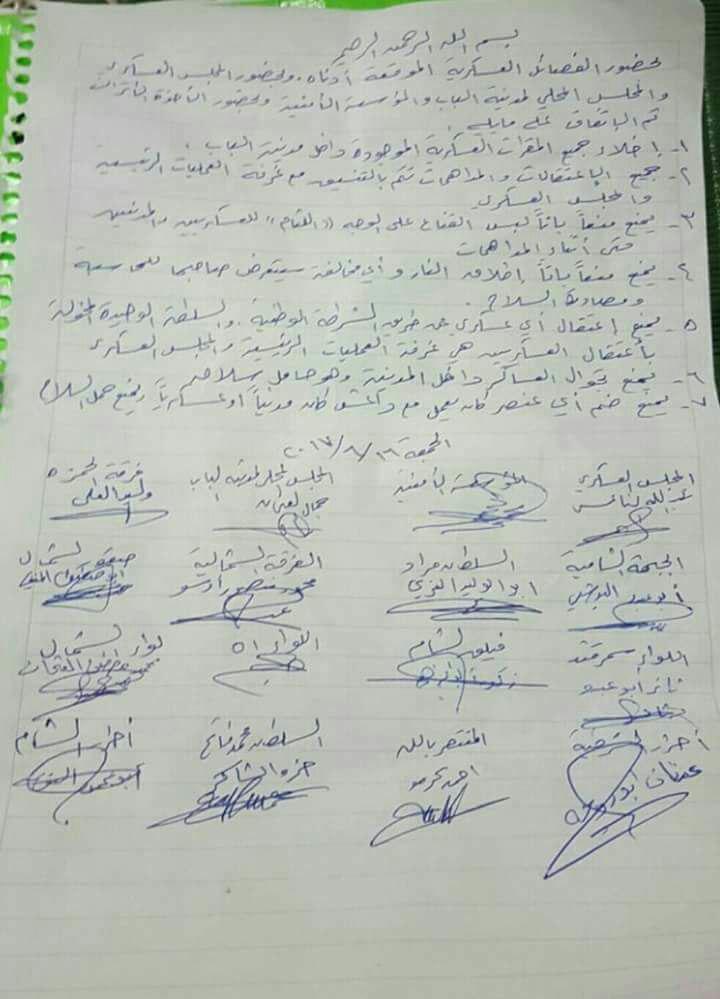 بسم الله الرحمن الرحيم
بحضور الفصائل العسكرية الموقعة أدناه وبحضور المجلس العسكري
والمجلس المحلي لمدينة الباب والمؤسسة الأمنية وبحضور الأخوة الأتراك
تم الإتفاق على مايلي:
١- إخلاء جميع المقرات العسكرية الموجودة داخل مدينة الباب.
٢- جميع الإعتقالات والمداهمات تتم بالتنسيق مع غرفة العمليات الرئيسية
والمجلس العسكري
٣- يمنع منعاً باتاً لبس القناع على الوجه «اللثام» للعسكريين والمدنيين
حتى أثناء المداهمات
٤- يمنع منعاً باتاً إطلاق النار وأي مخالفة سيتعرض صاحبها للمحاسبة
ومصادرة السلاح.
٥- يمنع إعتقال أي عسكري عن طريق الشرطة الوطنية. والسلطة الوحيدة المخولة
بأعتقال العسكريين هي غرفة العمليات الرئيسية والمجلس العسكري
٦- يمنع تجوال العساكر داخل المدينة وهو حامل سلاحه
٧- يمنع ضم أي عنصر كان يعمل مع داعش كان مدنياً أو عسكرياً ويمنع حمل السلاح
الجمعة ٢٠١٧/٦/١٦
المجلس العسكري المؤسسة الأمنية المجلس المحلي لمدينة الباب فرقة الحمزة
عبدالله جمال عثمان
الجبهة الشامية السلطان مراد الفرقة الشمالية صقور الشمال
أبو الوليد العزي
اللواء سمرقند فيلق الشام اللواء ٥١ لواء الشمال
ثائر أبو عبدو
أحرار الشرقية المنتصر بالله السلطان محمد فاتح أحرار الشام
حمزة الشاكر